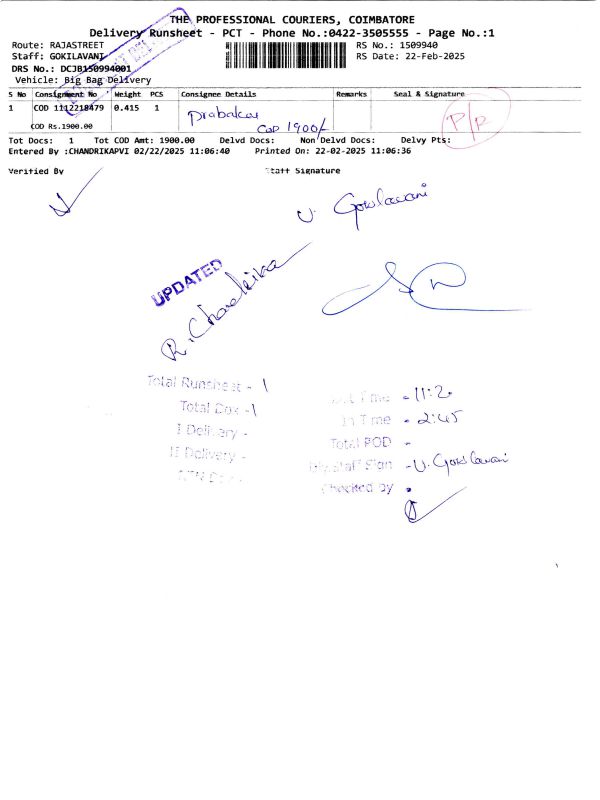 THE PROFESSIONAL COURIERS, COIMBATORE
Delivery Runsheet - PCT - Phone No.:0422-3505555 - Page No.:1
Route: RAJASTREET RS No.: 1509940
Staff: GOKILAVANI RS Date: 22-Feb-2025
DRS No.: DCJB150994001
Vehicle: Big Bag Delivery
S No Consignment No Weight PCS Consignee Details Remarks Seal & Signature
1 COD 1112218479 0.415 1 Prabakar P/R
COD Rs.1900.00 COD 1900/-
Tot Docs: 1 Tot COD Amt: 1900.00 Delvd Docs: Non Delvd Docs: Delvy Pts:
Entered By :CHANDRIKAPVI 02/22/2025 11:06:40 Printed On: 22-02-2025 11:06:36
Verified By Staff Signature
U. Gokilavani
UPDATED
R. Chandrika
Total Runsheet - 1
Out Time - 11:20
Total Dox - 1
In Time - 2:45
I Delivery -
Total POD -
II Delivery -
Staff Sign - U. Gokilavani
Checked by -